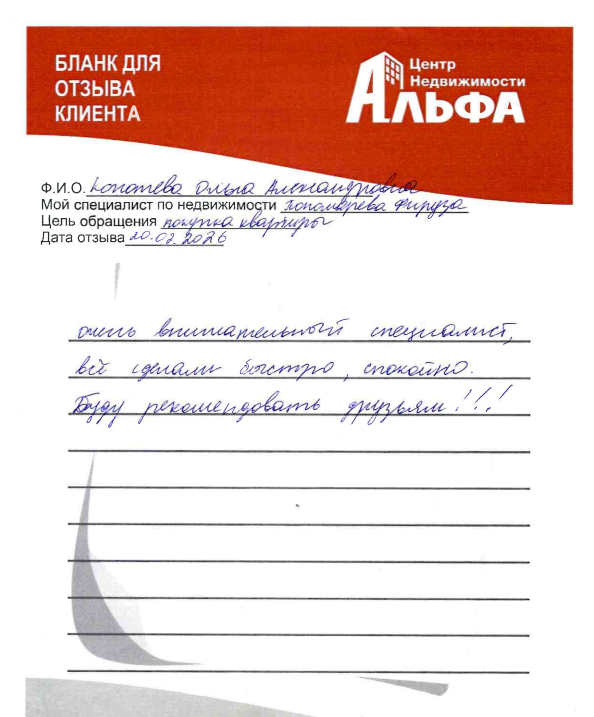 БЛАНК ДЛЯ
ОТЗЫВА
КЛИЕНТА
Центр
Недвижимости
АЛЬФА
Ф.И.О. Ольга Александровна
Мой специалист по недвижимости Фируза
Цель обращения покупка квартиры
Дата отзыва 20.02.2026
очень внимательный специалист,
всё сделали быстро, спокойно.
Буду рекомендовать друзьям!!!